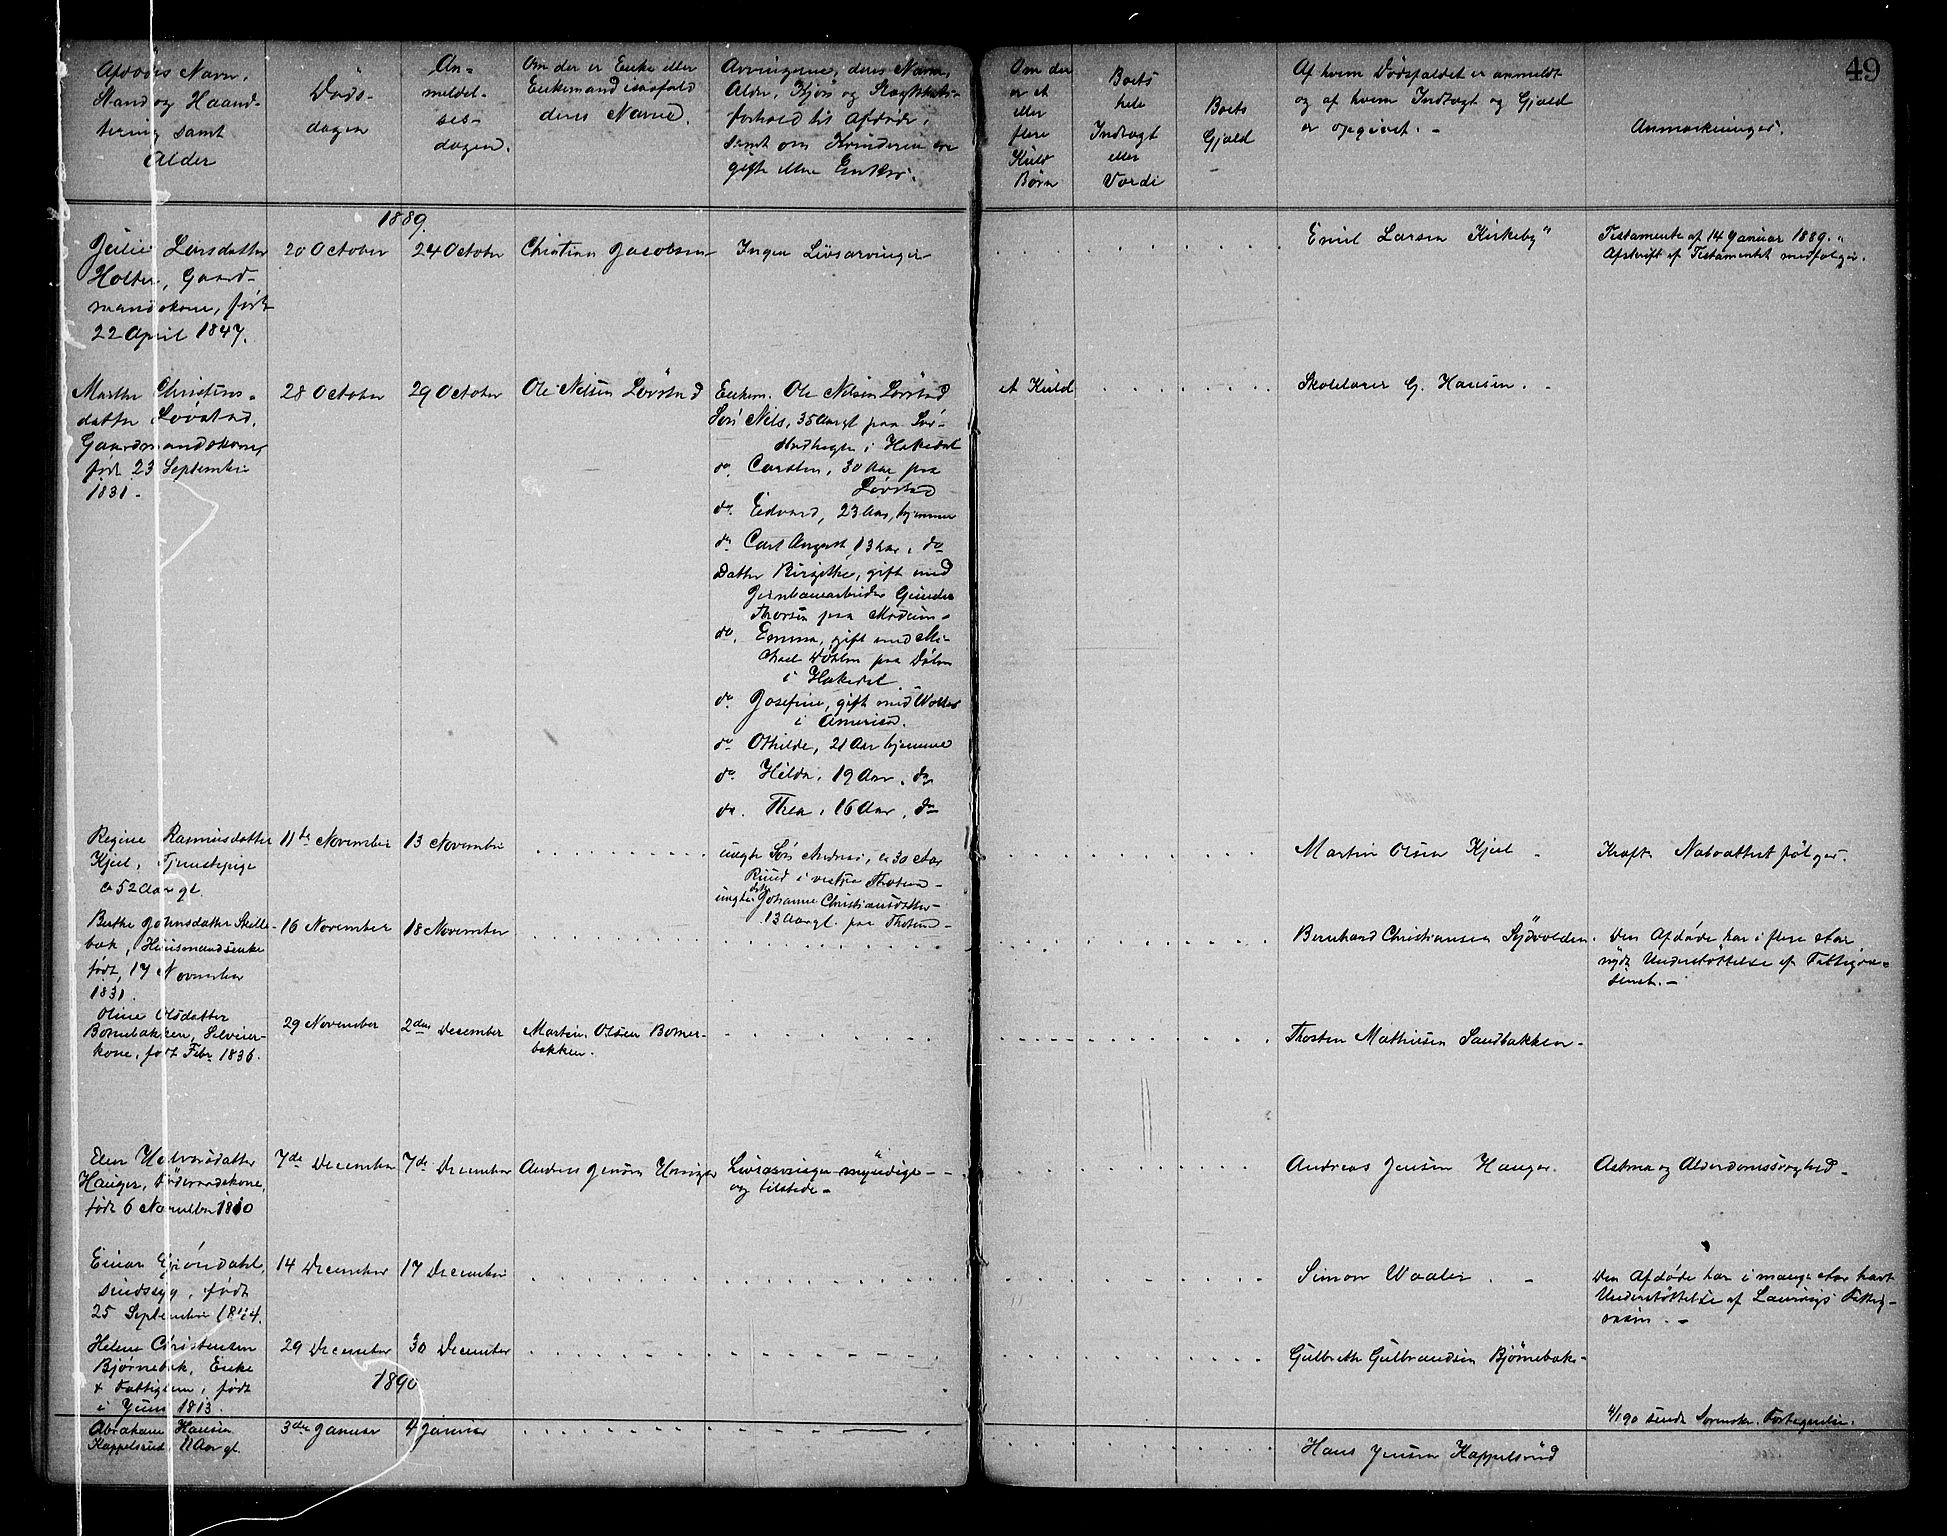 49
Afdødes Navn,
Stand og Haand-
tering samt
Alder
Døds-
dagen
An-
meldel-
ses-
dagen.
Om der er Enke eller
Enkemand isaafald
deres Navne.
Arvingerne, deres Navn,
Alder, Kjøn og Slægtskabs-
forhold til Afdøde,
samt om Kvinderne ere
gifte eller Enker.
Om der
er et
eller
flere
Kuld
Børn
Boets
hele
Indtægt
eller
Værdi
Boets
Gjæld
Af hvem Dødsfaldet er anmeldt
og af hvem Indtægt og Gjæld
er opgivet. -
Anmærkninger.
1889.
Julie Larsdatter
Holter, Gaard-
mandskone, født
22 April 1847.
20 October
24 October
Christian Jacobsen
Ingen Livsarvinger
Emil Larsen Kirkeby
Testamente af 14 Januar 1889.
Afskrift af Testamentet medfølger.
Marthe Christens-
datter Løvstad,
Gaardmandskone,
født 23 September
1831 -
28 October
29 October
Ole Nilsen Løvstad
Enkem. Ole Nilsen Løvstad
Søn Nils, 35 Aar gl paa
i Hakedal
do. Carsten, 30 Aar paa
Løvstad
do. Edvard, 23 Aar, hjemme
do. Carl August, 13 Aar, do
Datter Birgithe, gift med
Jernbanearbeider Gunder
Thorsen paa Modum -
do. Emma, gift med Mi-
chael Døhlen paa Dølen
i Hakedal
do. Josefine, gift med Wolter
i America.
do. Othilde, 21 Aar hjemme
do. Hilda, 19 Aar, do
do. Thea, 16 Aar, do
et Kuld
Skolelærer G. Hansen. -
Regine Rasmusdatter
Kjul, Tjenestepige
ca 52 Aar gl.
11te November
13 November
uægte Søn Andreas, ca 30 Aar
Ruud i vestre Thoten -
uægte dtr Johanne Christiansdatter -
13 Aar gl. paa Thoten -
Martin Olsen Kjul -
Kræft. Nabvattest følger.
Berthe Johnsdatter Skille-
bæk, Huusmandsenke
født 17 November
1831.
16 November
18 November
Bernhard Christiansen Sydvolden.
Den Afdøde har i flere Aar
nydt Understøttelse af Fattigvæ-
senet. -
Oline Olsdatter
Bomebakken, Selveier-
kone, født Febr 1836.
29 November
2den December
Martin Olsen Bomer-
bakken.
Thosten Mathiesen Sandbakken -
Elen Halvorsdatter
Hauger, Føderaadskone,
født 6 November 1810
7de December
7de December
Anders Jensen Hauger
Livsarvinger myndige -
og tilstede -
Andreas Jensen Hauger.
Astma og Alderdomssvaghed -
Einar Grøndahl,
sindssyg, født
25 September 1844.
14 December
17 December
Simon Waaler. -
Den Afdøde har i mange Aar havt
Understøttelse af Laurvigs Fattig-
væsen. -
Helene Christensen
Bjørnebæk, Enke
+ Fattiglem, født
i Juni 1813.
29 December
30 December
Gulbrith Gulbrandsen Bjørnebæk -
1890
4/1 90 sendt Sorenskr. Fortegnelse.
Abraham Hansen
Kappelsrud 11 Aar gl.
3die Januar
4 Januar
Hans Jensen Kappelsrud